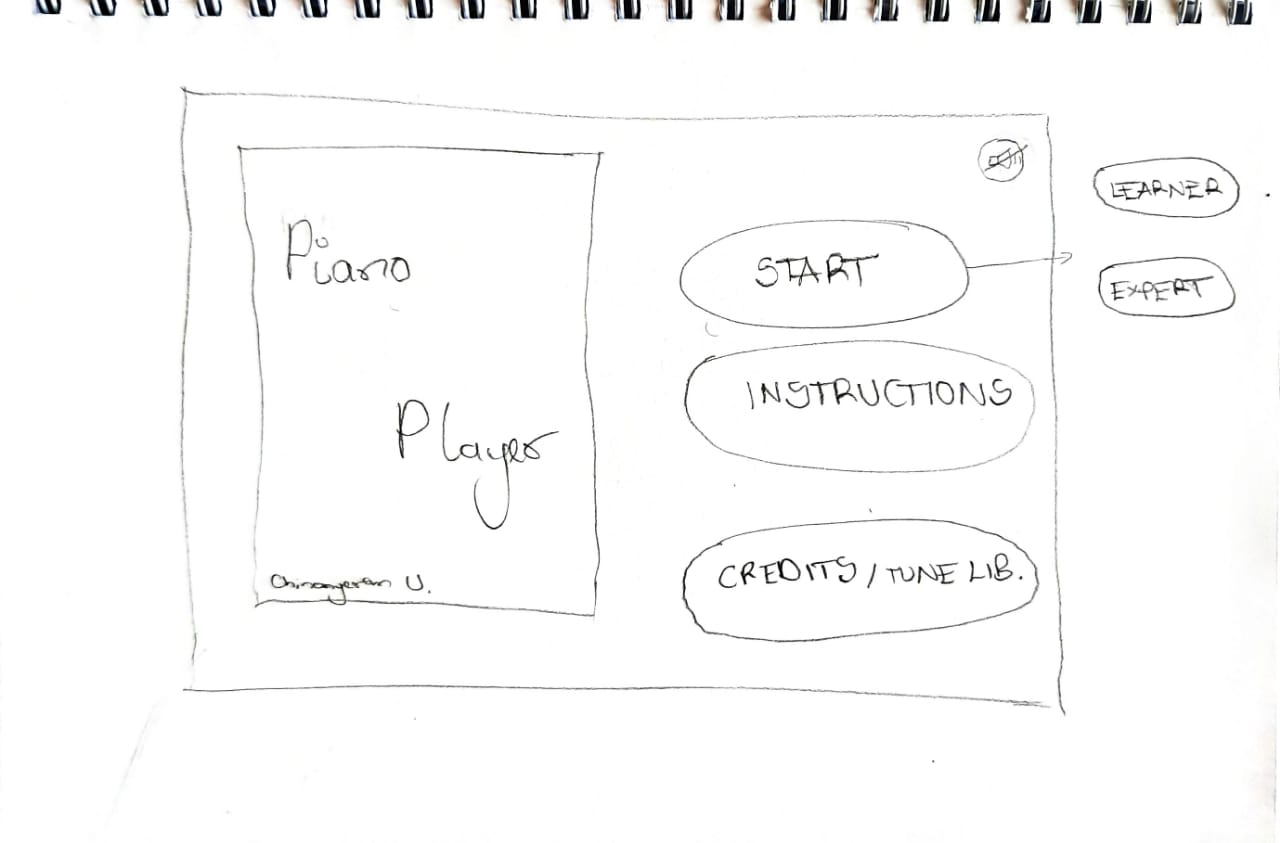 Piano
Player
U.
START
INSTRUCTIONS
CREDITS / TUNE LIB.
LEARNER
EXPERT